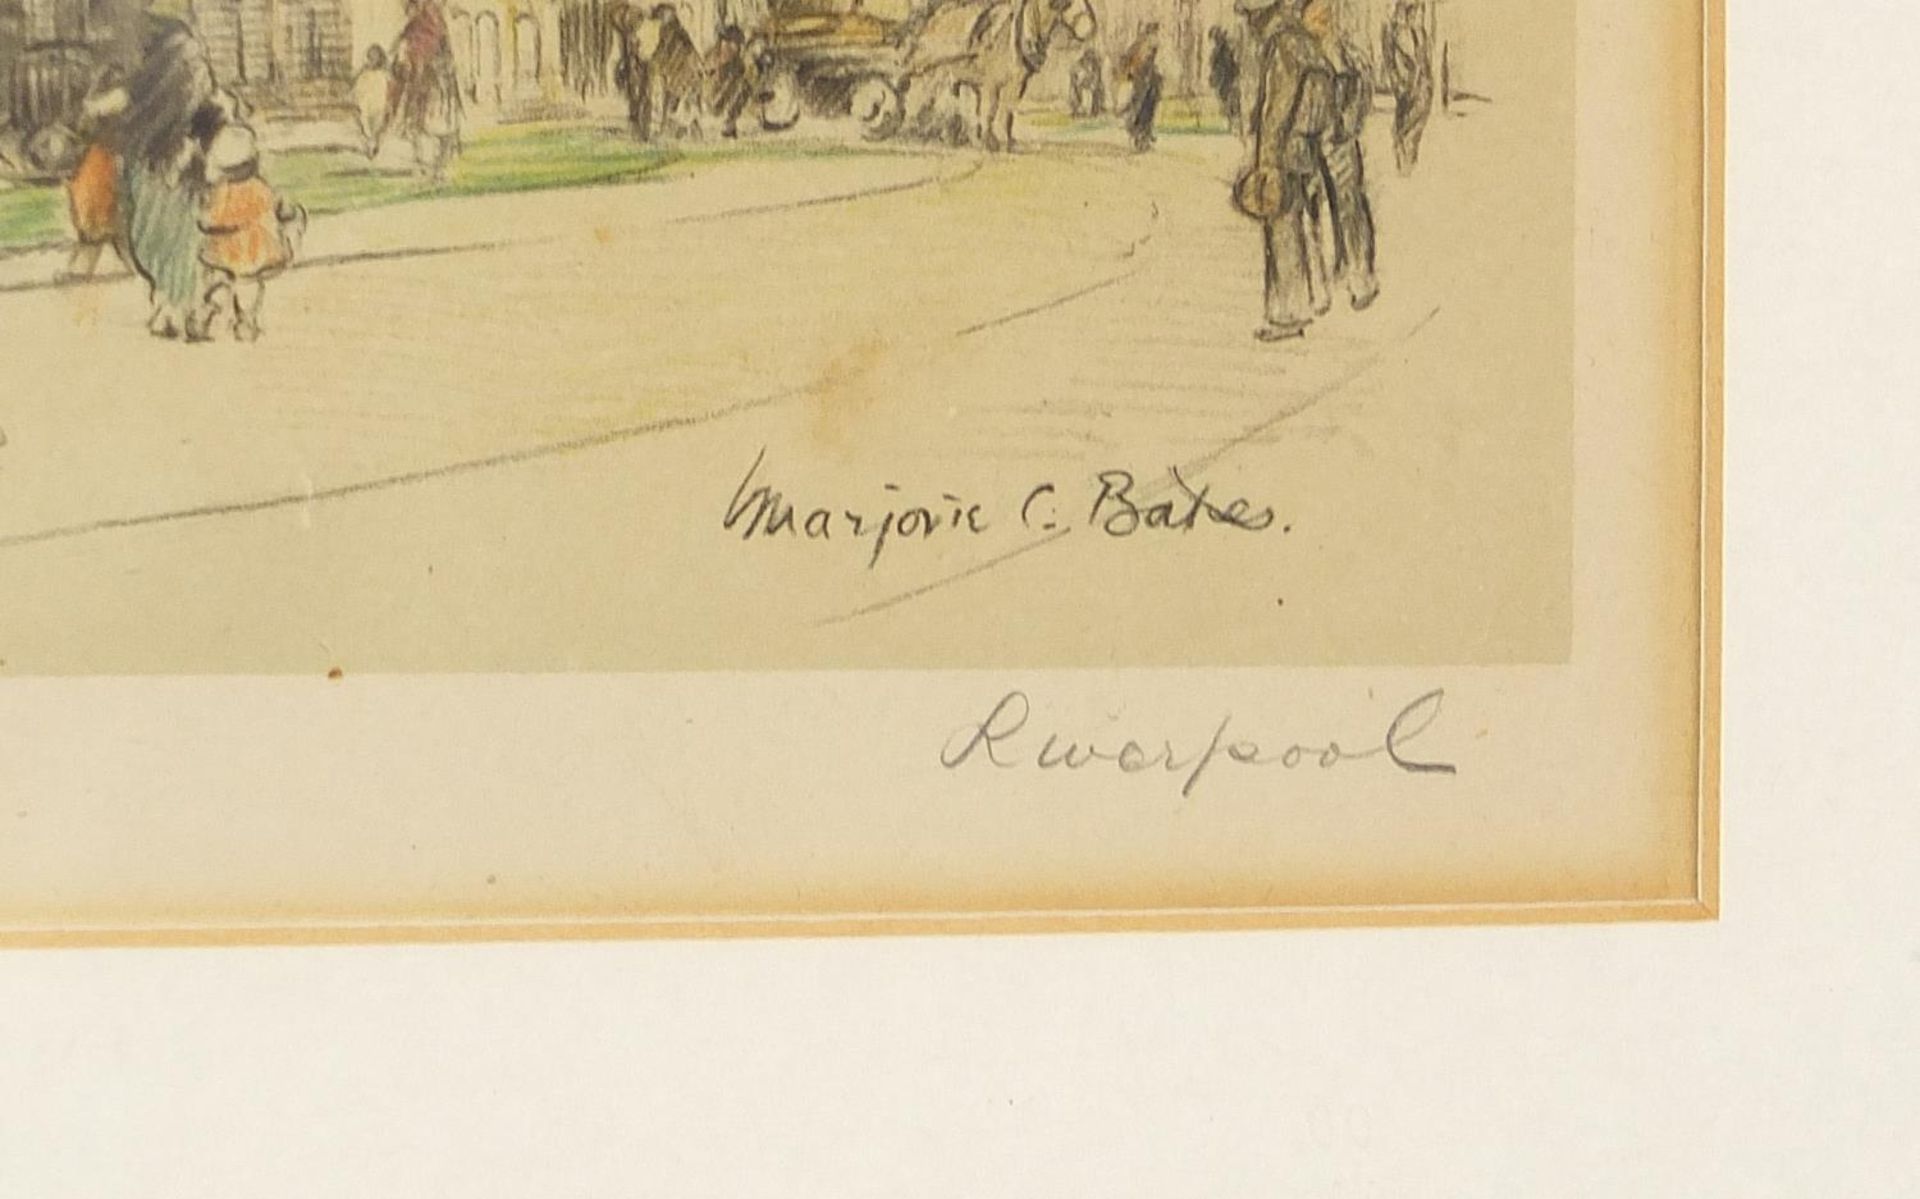 Marjorie C. Bates.
Liverpool